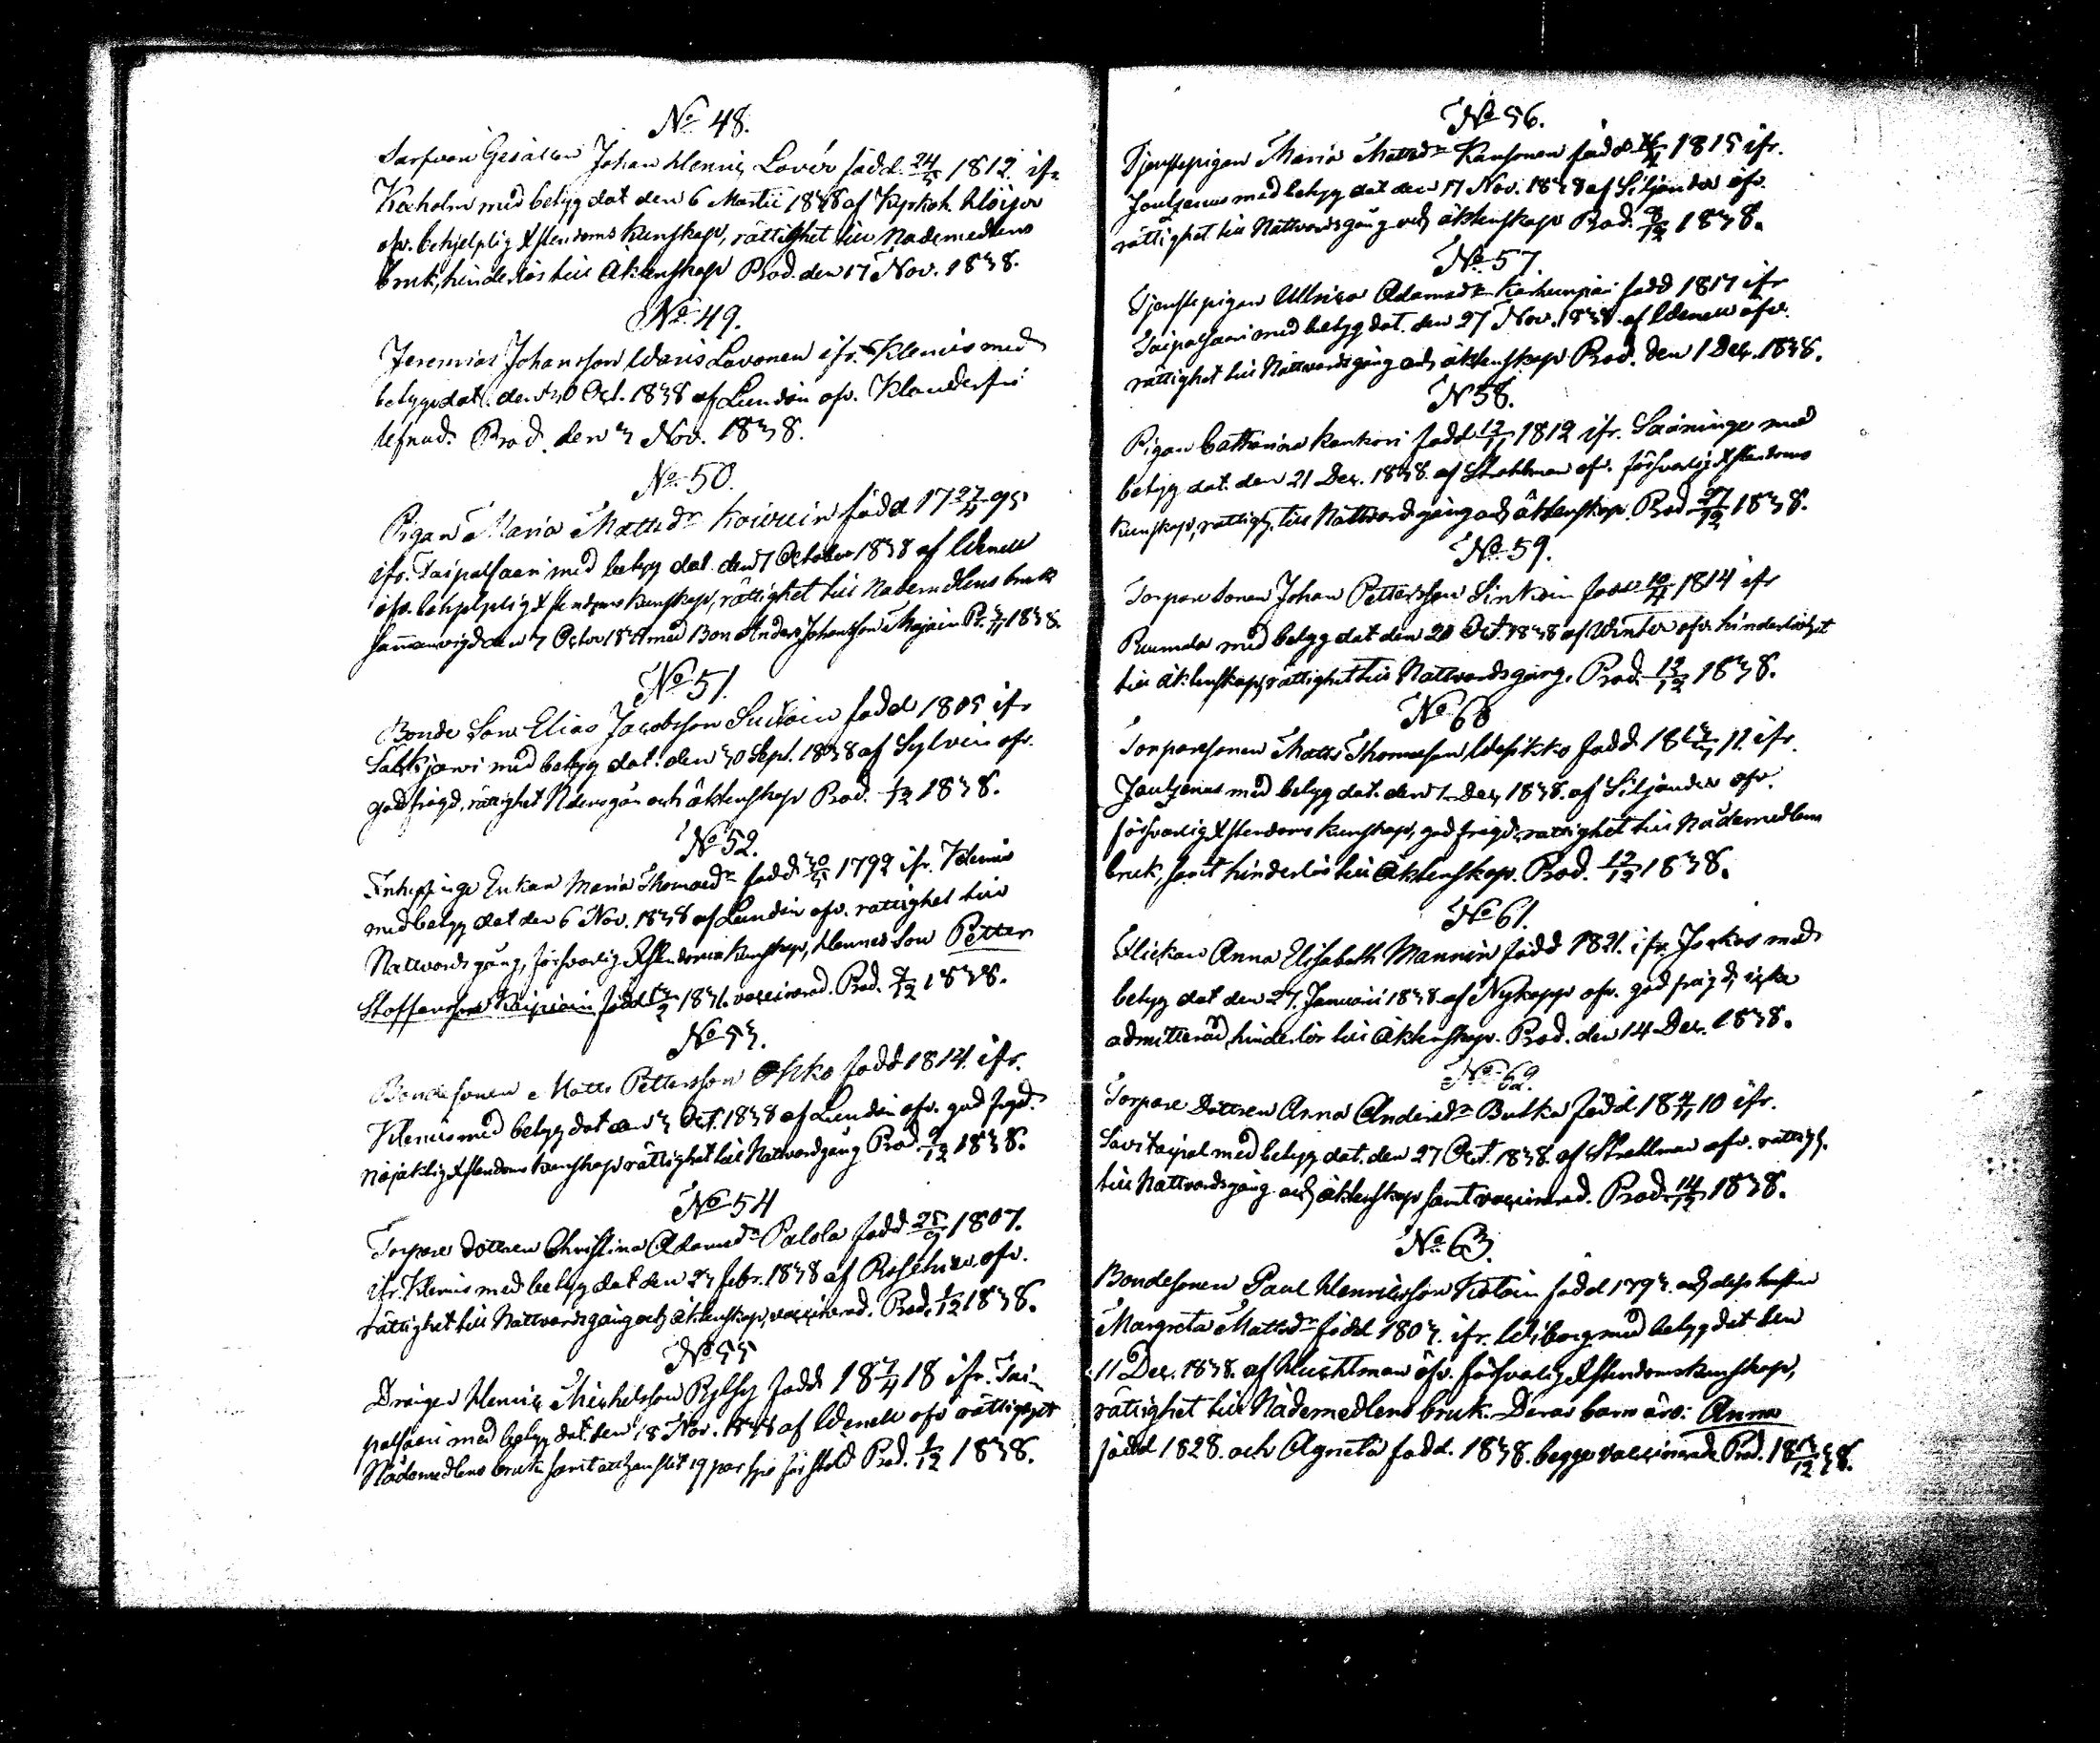 No 48.
Garfvare Gesällen Johan Henric Lovén född 24/5 1812. ifr.
Kexholm med betyg dat den 6 Martii 1838 af Kyrkoh. Höijer
öfv. behjelplig Xstendoms kunskap, rättighet till Nademedlens
bruk, hinderlös till Äktenskap Prod. den 17 Nov. 1838.
No 49.
Jeremias Johansson Lavonen ifr. Klemis med
betyg dat. den 30 Oct. 1838 af Lundén öfv. Klanderfri
lefnad. Prod. den 3 Nov. 1838.
No 50.
Pigan Maria Mattsdr Koivuin född 17 27/4 95
ifr. Taipalsaari med betyg dat. den 7 October 1838 af Wenell
öfv. behjelplig Xstendoms kunskap, rättighet till Nademedlens bruk
Samanvigd den 7 October 1838 med Bon Anders Johansson Pr. 3/11 1838.
No 51.
Bonde Son Elias Jacobsson född 1805 ifr
Säkkjärvi med betyg dat. den 30 Sept. 1838 af Sylvin öfv.
god frägd, rättighet och äktenskap Prod. 1/12 1838.
No 52.
Inhysinge Enkan Maria Thomaedr född 30/5 1792 ifr. Klemis
med betyg dat den 6 Nov. 1838 af Lundén öfv. rättighet till
Nattvards gång, försvarlig Xstendoms kunskap, Hennes Son Petter
Stoffersson Kaipiain född 1831. vaccinerad. Prod. 2/12 1838.
No 53.
Bondesonen Matts Pettersson född 1814. ifr.
Klemis med betyg dat den 3 Oct. 1838 af Lundén öfv. god fregd.
nöjaktig Xstendoms kunskap rättighet till Nattvardgång Prod. 9/12 1838.
No 54
Torpare dottren Christina Adamsdr Palola född 25/9 1807.
ifr. Klemis med betyg dat den 23 febr. 1838 af öfv.
rättighet till Nattvardsgång och äktenskap, vaccinerad. Prod. 1/12 1838.
No 55
Drängen Henric Michelsson född 18 7/4 18 ifr. Tai-
palsaari med betyg dat. den 18 Nov. 1838 af Wenell öfv rättighet
Nådemedlens bruk samt att han slitit 19 par spö för stöld Prod. 1/12 1838.
No 56.
Tjenstepigan Maria Mattsdr Kansonen född 1815 ifr.
Joutzenus med betyg dat den 17 Nov. 1838 af Siljander öfv.
rättighet till Nattvardsgång och äktenskap Prod. 8/12 1838.
No 57
Tjenstepigan Ullrica Adamsdr född 1817 ifr
Taipalsaari med betyg dat. den 27 Nov. 1838. af Wenell öfv.
rättighet till Nattvardsgång och äktenskap Prod. den 1 Dec. 1838.
N 58.
Pigan Catharina Kankori född 12/11 1812 ifr. med
betyg dat. den 21 Dec. 1838 af Strahlman öfv. försvarlig Xstendoms
kunskap, rättigh. till Nattvardsgång och äktenskap. Prod 27/12 1838.
No 59.
Torpare Sonen Johan Pettersson Sinkoin född 10/4 1814 ifr
med betyg dat den 20 Oct. 1838 af Winter öfv. hinderlöshet
till äktenskap, rättighet till Nattvardsgång. Prod. 12/12 1838.
No 60
Torparesonen Matts Thomasson född 18 11. ifr.
Joutzenus med betyg dat. den 1 Dec 1838. af Siljander öfv.
försvarlig Xstendoms kunskap, god frägd, rättighet till Nådemedlens
bruk, samt hinderlös till Äktenskap. Prod. 12/12 1838.
No 61.
Flickan Anna Elisabeth Mannin född 1821. ifr. Jorkos med
betyg dat den 27. Januarii 1838. af Nykopp öfv. god frägd, icke
admitterad, hinderlös till äktenskap. Prod. den 14 Dec. 1838.
No 62.
Torpare dottren Anna Andersdr Butka född 18 4/11 10 ifr.
Savitaipal med betyg dat. den 27 Oct. 1838. af Strahlman öfv. rättigh.
till Nattvardsgång och äktenskap samt vaccinerad. Prod. 14/12 1838.
No 63.
Bondesonen Paul Henricsson född 1793. och dess hustru
Margreta Mattsdr född 1803. ifr. Wiborg med betyg dat den
11 Dec. 1838. af öfv. försvarlig Xstendomskunskap,
rättighet till Nådemedlens bruk. Deras barn äro: Anna
född 1828. och Agneta född. 1838. begge vaccinerade. Prod. 18 /12 38.